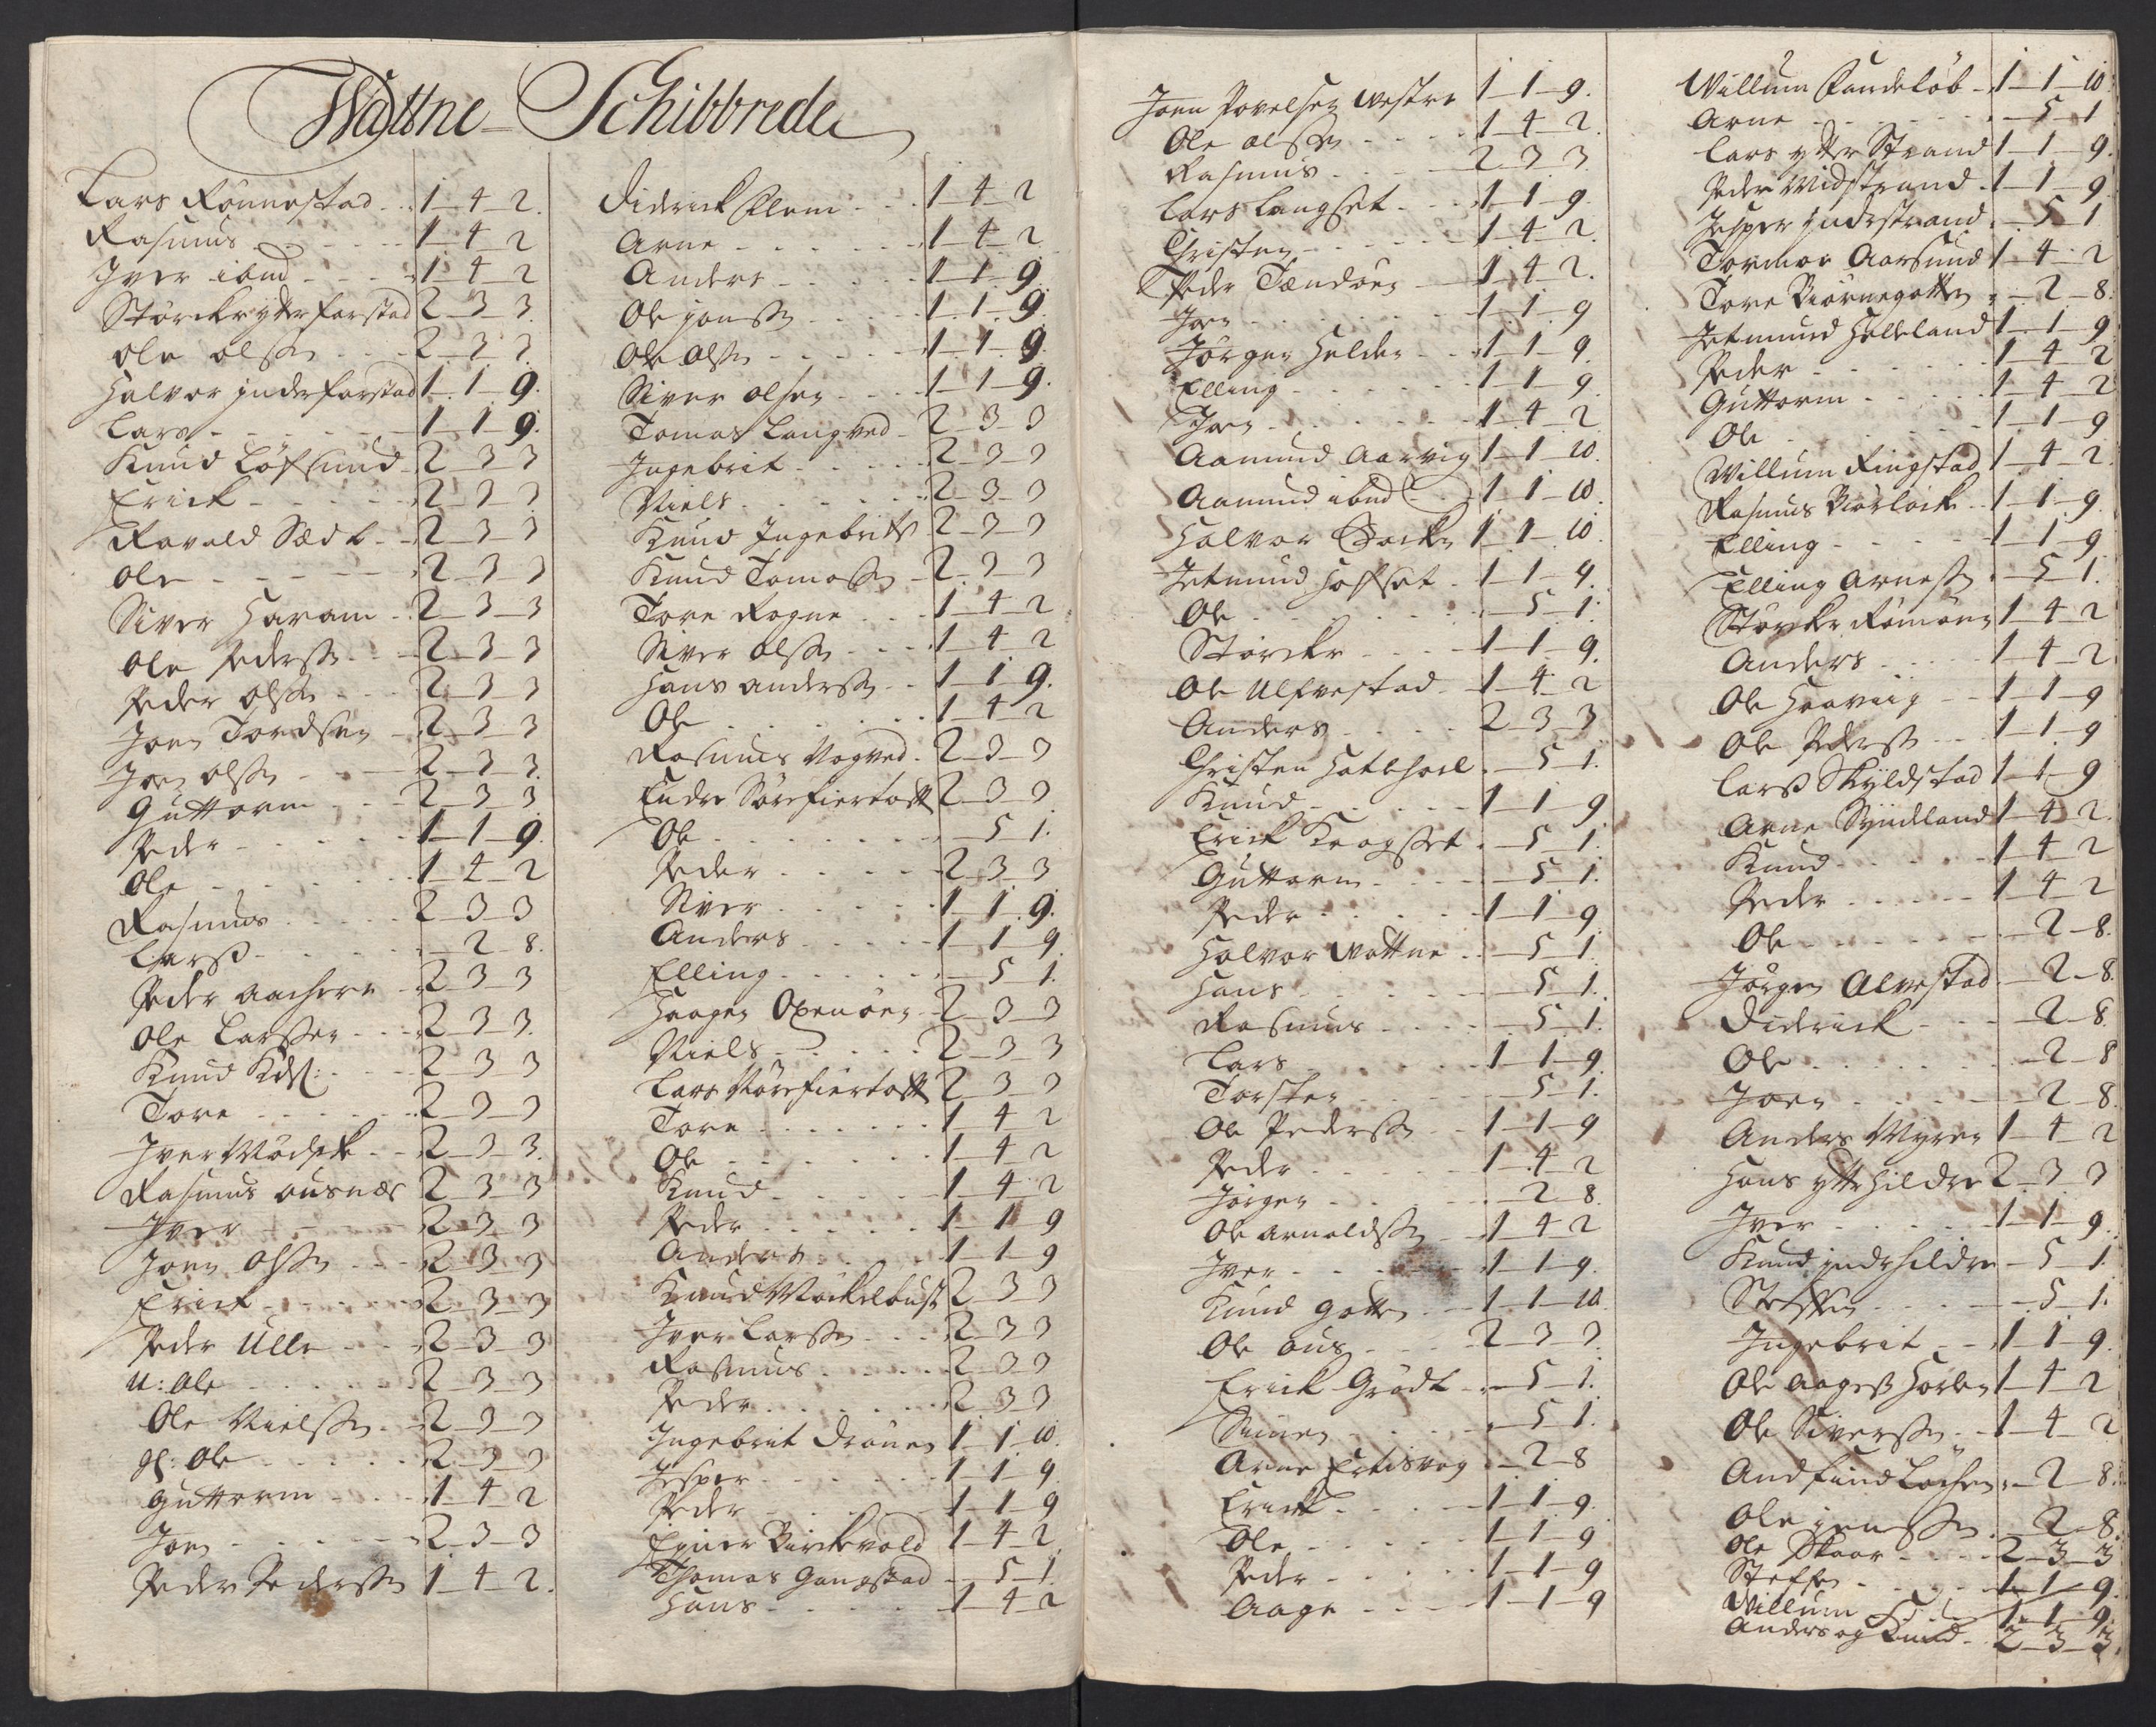 Wattne Schibbrede
Lars Rönnestad 1 4 2
Rasmus 1 4 2
Jver ibm 1 4 2
Störcker ytterforstad 2 3 3
Ole olssen 2 3 3
Halvor inderforstad 1 1 9
Lars 1 1 9
Knud Löfsund 2 3 3
Erick 2 3 3
Ravald Sædt 2 3 3
Ole 2 3 3
Siver Haram 2 3 3
Ole Pederssen 2 3 3
Peder olssen 2 3 3
Joen Tordsen 2 3 3
Joen olssen 2 3 3
Guttorm 2 3 3
Peder 1 1 9
Ole 1 4 2
Rasmus 2 3 3
Larss 2 8
Peder Aachere 2 3 3
Ole Larssen 2 3 3
Knud 2 3 3
Tore 2 3 3
Jver 2 3 3
Rasmus ausnæs 2 3 3
Jver 2 3 3
Joen olssen 2 3 3
Erick 2 3 3
Peder Ulle 2 3 3
U: Ole 2 3 3
Ole Nielssen 2 3 3
gl: Ole 2 3 3
Guttorm 1 4 2
Joen 2 3 3
Peder Pederssen 1 4 2
Didrick Flem 1 4 2
Arne 1 4 2
Anders 1 1 9
Ole jonssen 1 1 9
Ole olssen 1 1 9
Siver olsen 1 1 9
Tomas Langved 2 3 3
Ingebrit 2 3 3
Niels 2 3 3
Knud Ingebrits 2 3 3
Knud Tomassen 2 3 3
Tore Rogne 1 4 2
Siver olssen 1 4 2
Hans anderssen 1 1 9
Ole 1 4 2
Rasmus Rogned 2 3 3
Endre Sörefiertoft 2 3 3
Ole 5 1
Peder 2 3 3
Siver 1 1 9
Anders 1 1 9
Elling 5 1
Haagen Oxenöen 2 3 3
Niels 2 3 3
Lars Nörefiertoft 2 3 3
Tore 1 4 2
Ole 1 4 2
Knud 1 4 2
Peder 1 1 9
Anders 1 1 9
Knud Möckelbust 2 3 3
Jver Larssen 2 3 3
Rasmus 2 3 3
Peder 2 3 3
Ingebrit Drönen 1 1 10
Jesper 1 1 9
Peder 1 1 9
Einer Birckevold 1 4 2
Thomas Gangstad 5 1
Hans 1 4 2
Joen Povelsen westre 1 1 9
Ole olssen 1 4 2
Rasmus 2 3 3
Lars Langset 1 1 9
Christen 1 4 2
Peder Tændöen 1 4 2
Joen 1 1 9
Jörgen Helden 1 1 9
Elling 1 1 9
Joen 1 4 2
Aamund Aarvig 1 1 10
Aamund ibm 1 1 10
Halvor 1 1 10
Jetmund Hofset 1 1 9
Ole 5 1
Störcker 1 1 9
Ole Ulfvestad 1 4 2
Anders 2 3 3
Christen Hatlehoel 5 1
Knud 1 1 9
Erick Krogset 5 1
Guttorm 5 1
Peder 1 1 9
Halvor Wattne 5 1
Hans 5 1
Rasmus 5 1
Lars 1 1 9
Torsten 5 1
Ole Pederssen 1 1 9
Peder 1 4 2
Jörgen 2 8
Ole arnoldssen 1 4 2
Jver 1 1 9
Knud Gotten 1 1 10
Ole aus 2 3 3
Erick Grödt 5 1
Simen 5 1
Arne Ertisvog 2 8
Erick 1 1 9
Ole 1 1 9
Peder 1 1 9
Aage 1 1 9
Willum Sundeløb 1 1 10
Arne 5 1
Lars ytter Strand 1 1 9
Peder Midstrand 1 1 9
Jesper Inderstrand 5 1
Tormoe Aarsund 1 4 2
Tore Biörnegotten 2 8
Jetmund Helleland 1 1 9
Peder 1 4 2
Guttorm 1 4 2
Ole 1 1 9
Willum Ringstad 1 4 2
Rasmus Biörlöck 1 1 9
Elling 1 1 9
Elling Arnessen 5 1
Störcker Römöen 1 4 2
Anders 1 4 2
Ole Haaviig 1 1 9
Ole Pederss 1 1 9
Larss Skyldstad 1 1 9
Arne Syndland 1 4 2
Knud 1 4 2
Peder 1 4 2
Ole 2 8
Jörgen Alvestad 2 8
Diderick 2 8
Ole 2 8
Joen 2 8
Anders Myren 1 4 2
Hans ytterHildre 2 3 3
Jver 1 1 9
Knud inderhildre 5 1
Steffen 5 1
Ingebrit 1 1 9
Ole Aagess Horlen 1 4 2
Ole Siverssen 1 4 2
Andfind Löchen 2 8
Ole jenssen 2 8
Ole Skaar 2 3 3
Steffen 1 1 9
Willum 1 1 9
Anders og Knud 2 3 3